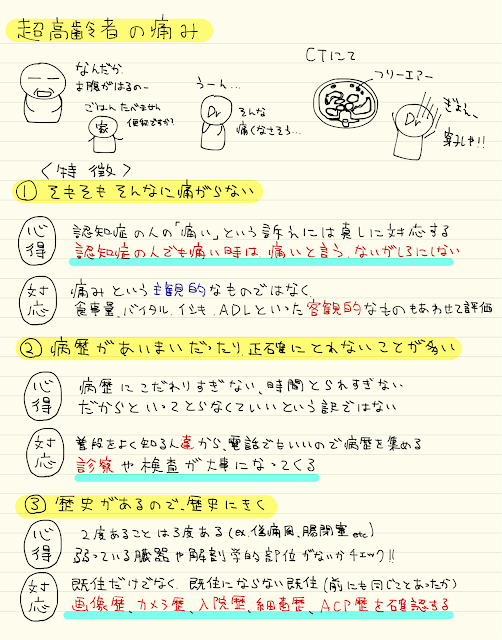 超高齢者の痛み
なんだか
お腹がはるの〜
ごはんたべません
便秘ですか?
家
うーん…
Dr
そんな
痛くなさそう…
CTにて
フリーエアー
Dr
ぎょえ、
穿孔や!!
<特徴>
① そもそもそんなに痛がらない
心得
認知症の人の「痛い」という訴えには真しに対応する
認知症の人でも痛い時は、痛いと言う、ないがしろにしない
対応
痛みという主観的なものではなく、
食事量、バイタル、イシキ、ADLといった客観的なものもあわせて評価
② 病歴があいまいだったり、正確にとれないことが多い
心得
病歴にこだわりすぎない、時間とられすぎない
だからといってとらなくていいという訳ではない
対応
普段をよく知る人達から、電話でもいいので病歴を集める
診察や検査が大事になってくる
③ 歴史があるので、歴史にきく
心得
2度あることは3度ある(ex.偽痛風、腸閉塞etc)
弱っている臓器や解剖学的部位がないかチェック!!
対応
既往だけでなく、既往にならない既往(前にも同じことあったか)
画像歴、カメラ歴、入院歴、細菌歴、ACP歴を確認する